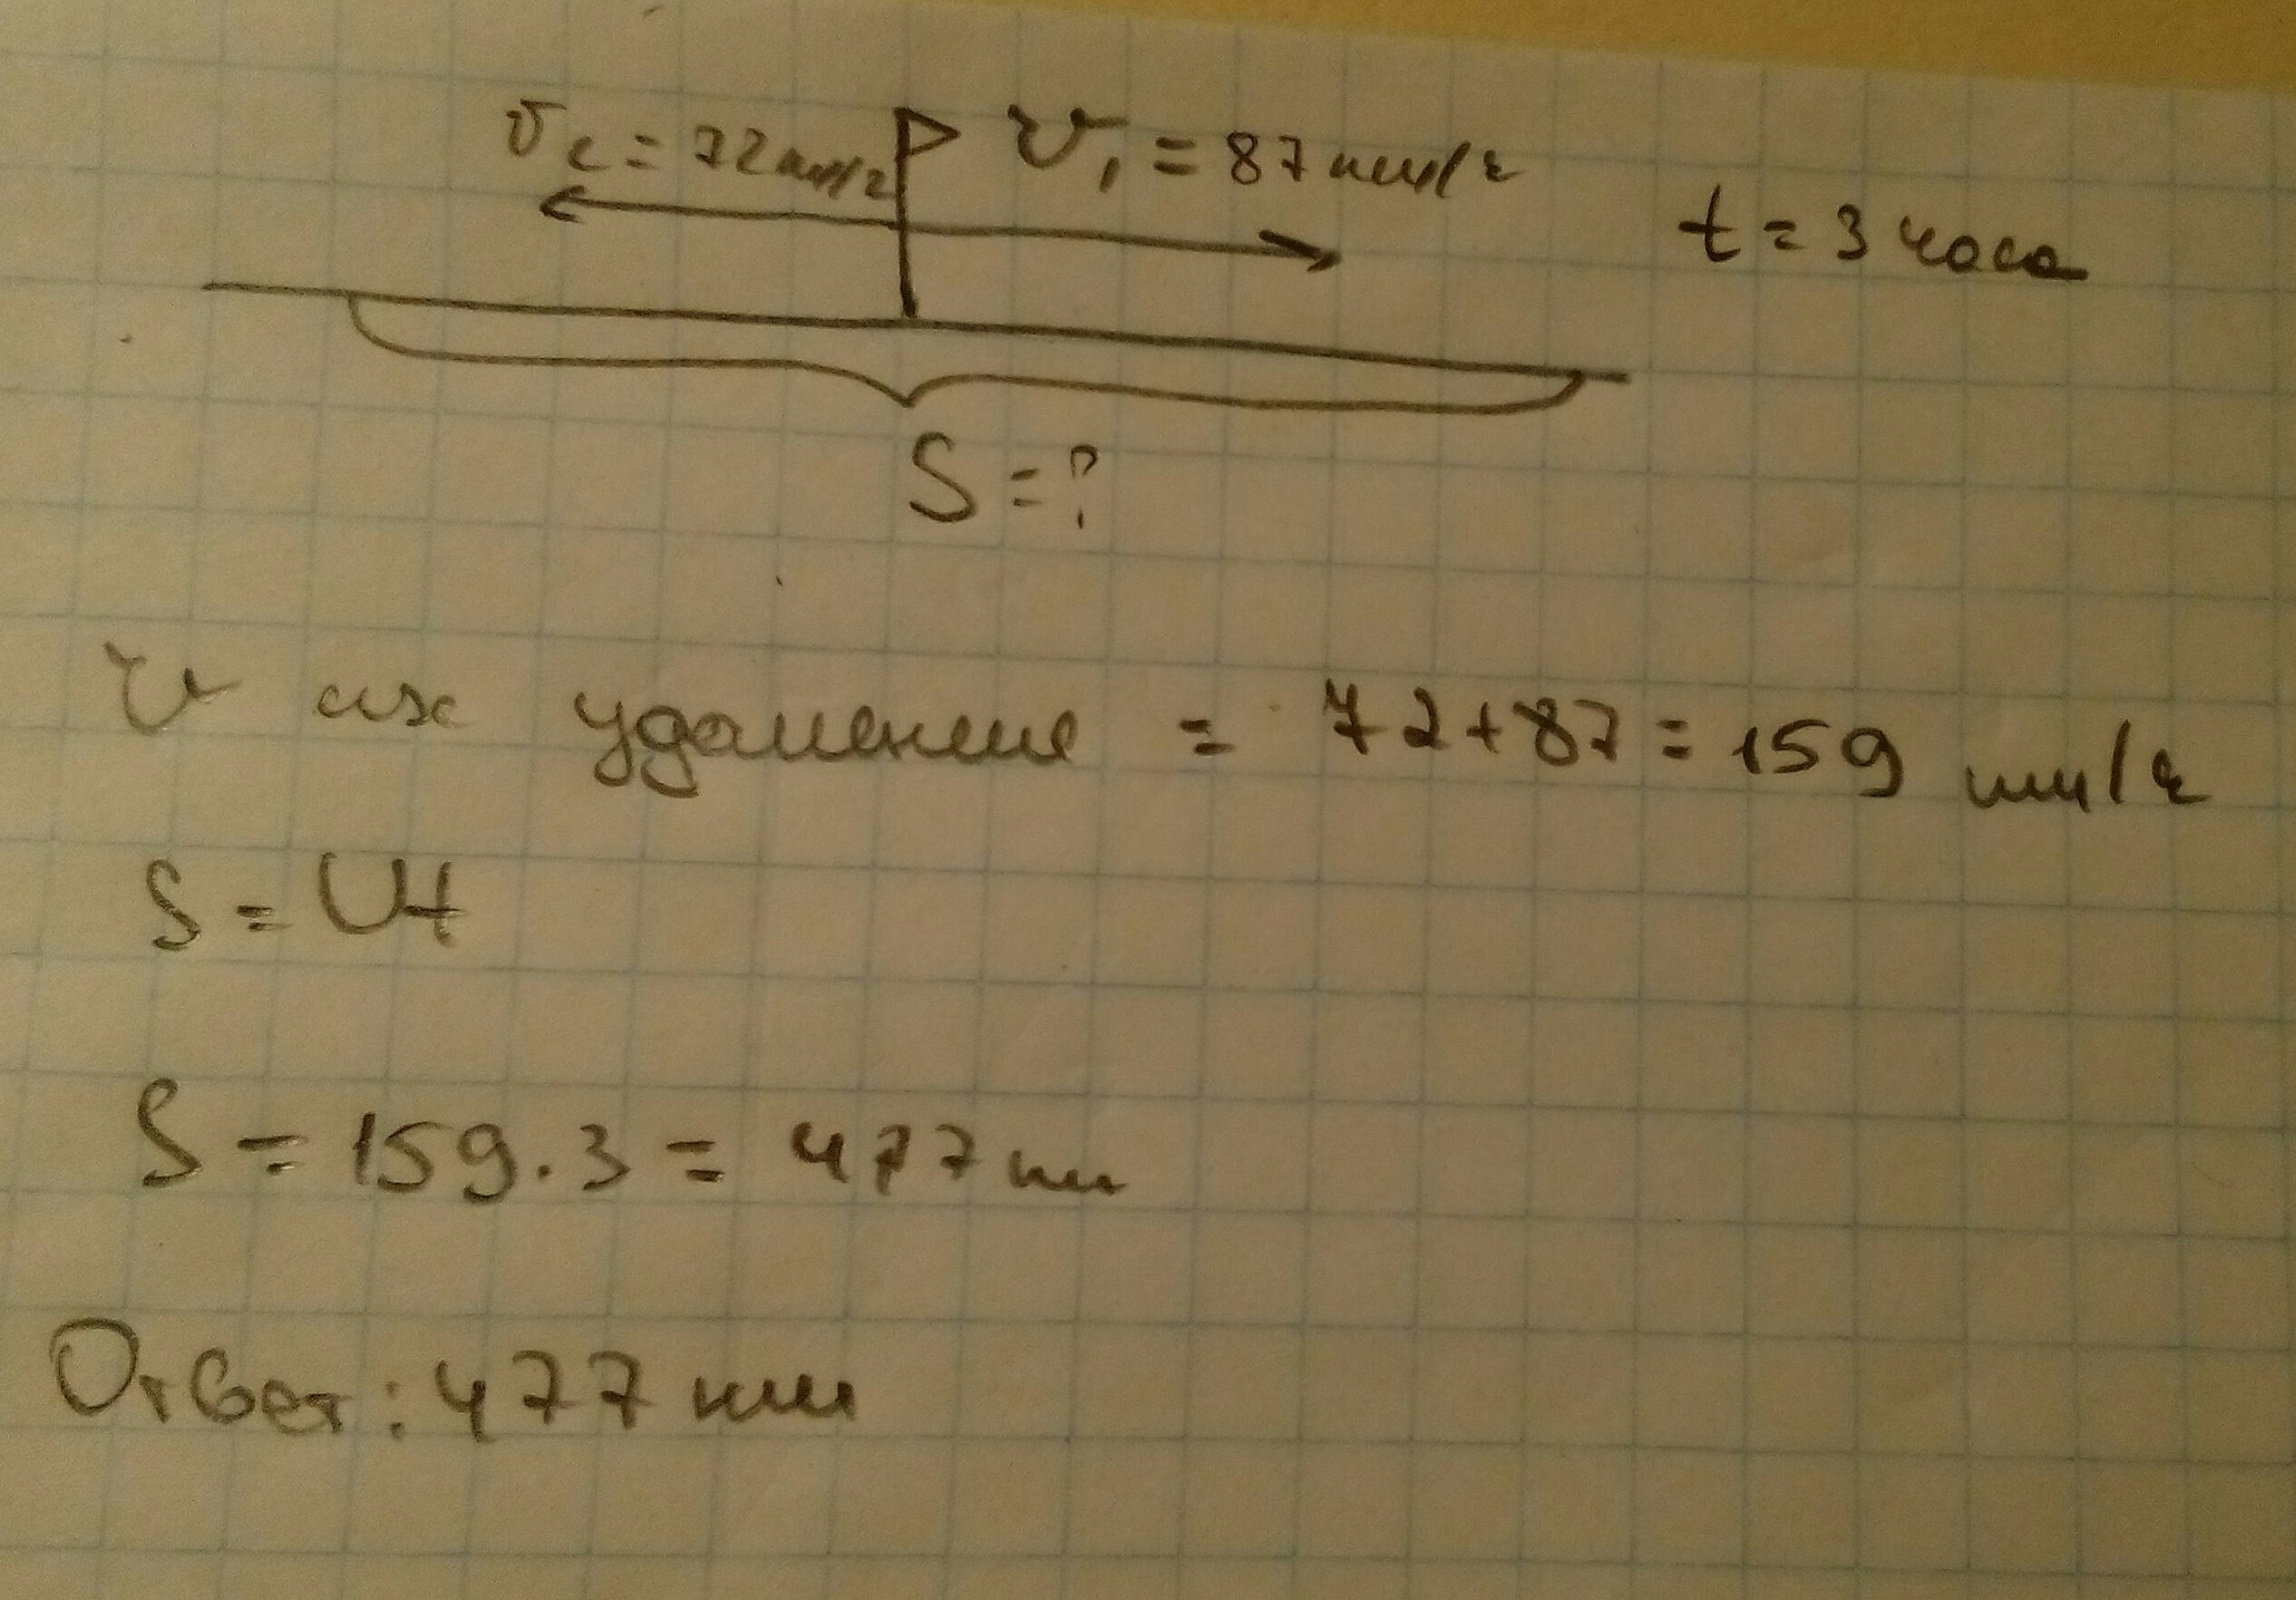 v₂ = 72 км/ч v₁ = 87 км/ч t = 3 часа
S = ?
v их удаление = 72+87 = 159 км/ч
S = Ut
S = 159 · 3 = 477 км
Ответ: 477 км